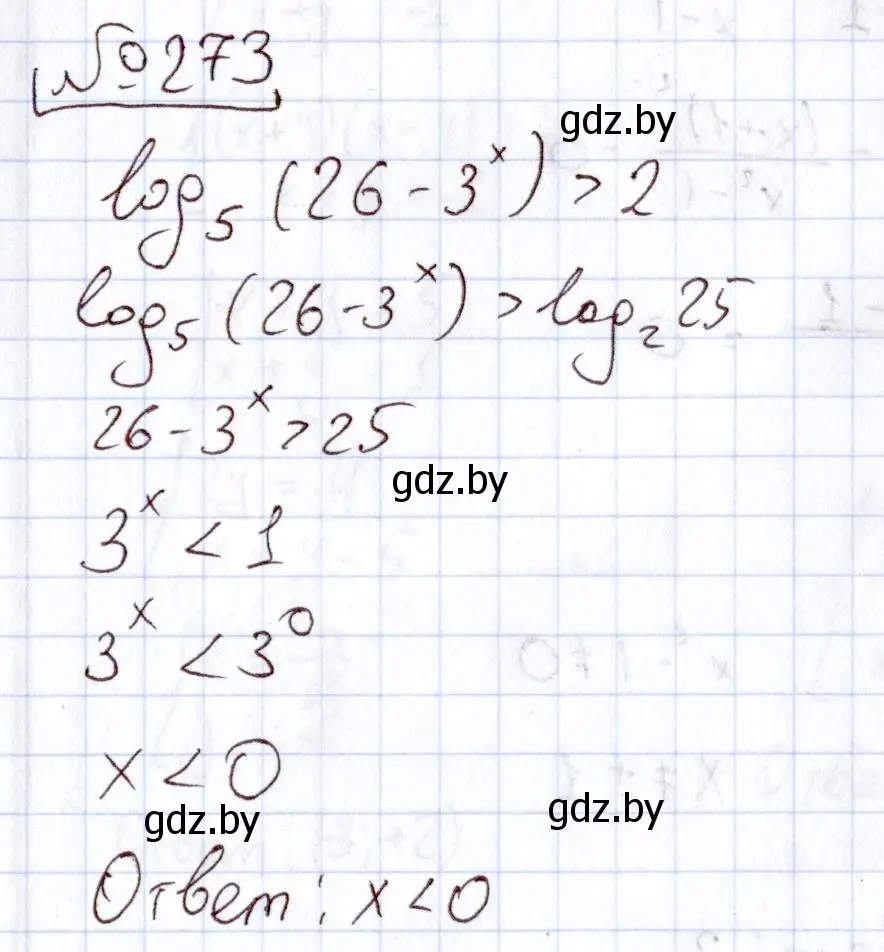 № 273
gdz.by
log₅ (26 - 3ˣ) > 2
log₅ (26 - 3ˣ) > log₂ 25
26 - 3ˣ > 25
gdz.by
3ˣ < 1
3ˣ < 3⁰
x < 0
gdz.by gdz.by
Ответ: x < 0